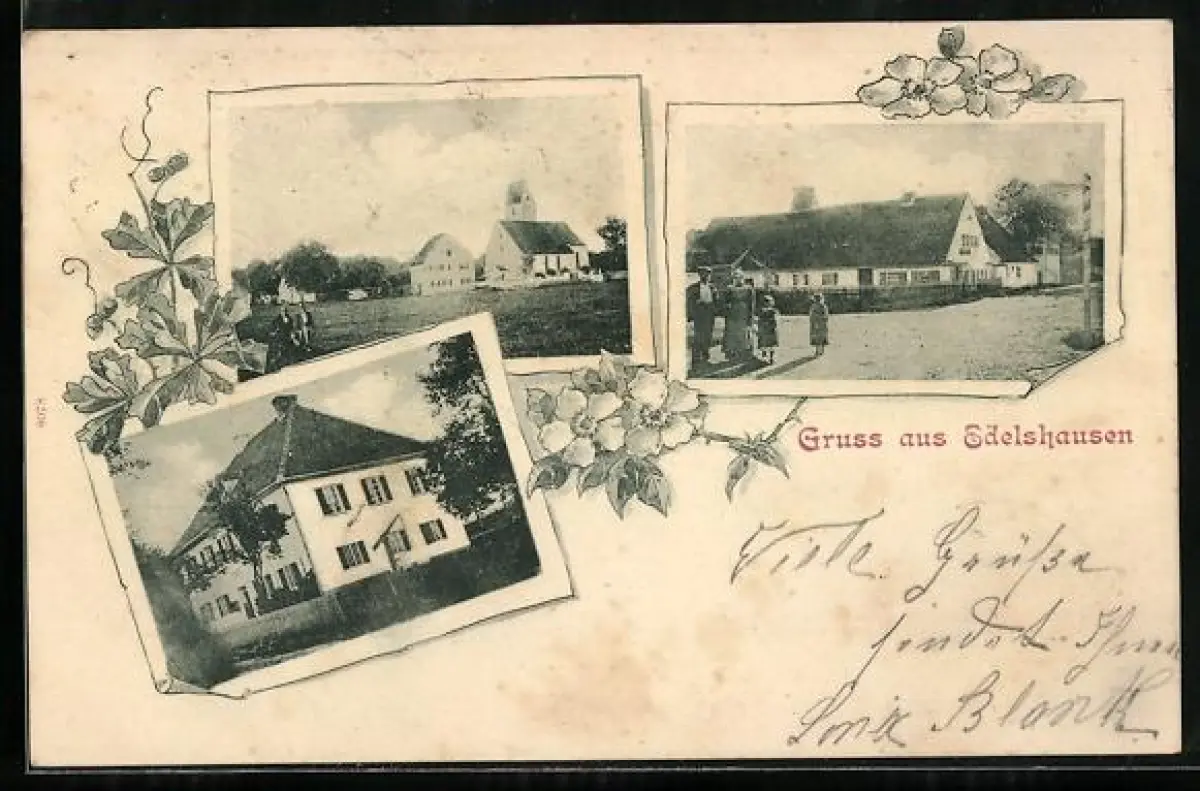 Gruss aus Edelshausen
Viele Grüße
sendet Ihnen
Blank
8206